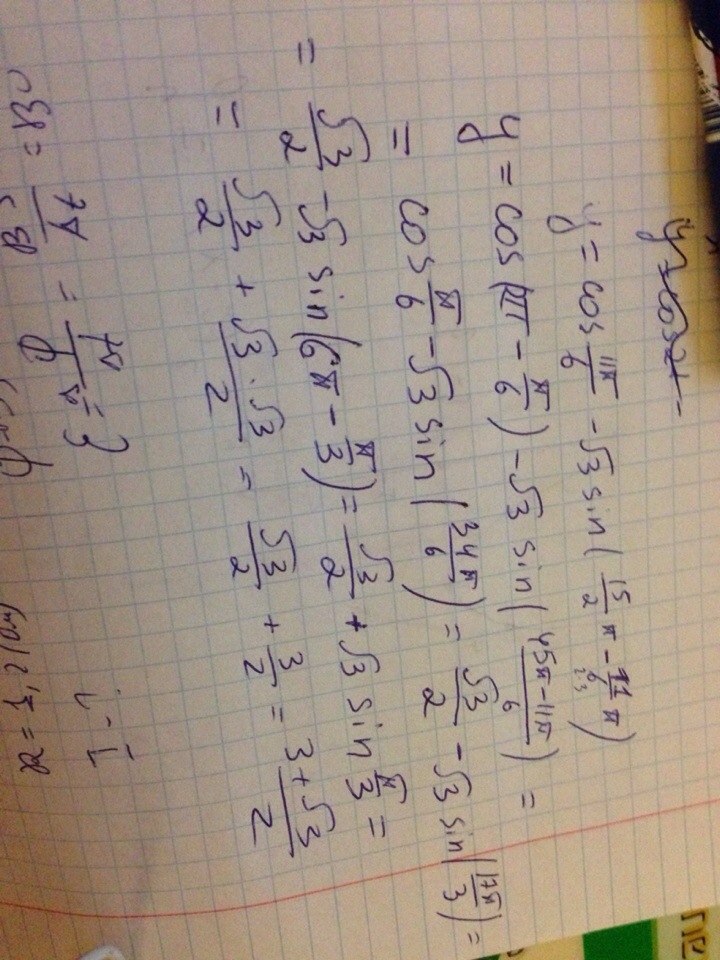 y = cos x -
y = cos 11π/6 - √3 sin (15/2 π - 11/6 π)
y = cos (2π - π/6) - √3 sin (45π - 11π / 6) =
= cos π/6 - √3 sin (34π/6) = √3/2 - √3 sin (17π/3) =
= √3/2 - √3 sin (6π - π/3) = √3/2 + √3 sin π/3 =
= √3/2 + √3·√3/2 = √3/2 + 3/2 = 3+√3/2